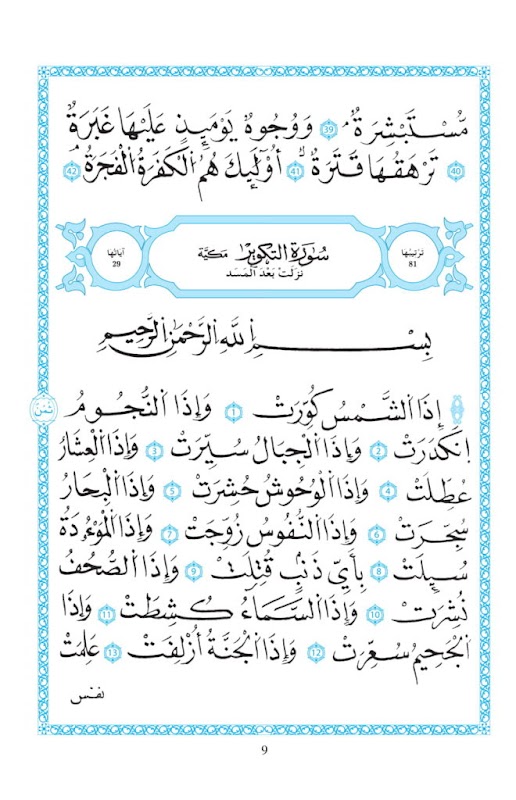 مُّسْتَبْشِرَةٌ 39 وَوُجُوهٌ يَوْمَئِذٍ عَلَيْهَا غَبَرَةٌ
40 تَرْهَقُهَا قَتَرَةٌ 41 أُوْلَٰئِكَ هُمُ الْكَفَرَةُ الْفَجَرَةُ 42
تَرْتِيبُهَا 81
سُورَةُ التَّكْوِيرِ مَكِّيَّة
نَزَلَتْ بَعْدَ الْمَسَد
آيَاتُهَا 29
بِسْمِ اللَّهِ الرَّحْمَٰنِ الرَّحِيمِ
إِذَا الشَّمْسُ كُوِّرَتْ 1 وَإِذَا النُّجُومُ
ثُمُن
انكَدَرَتْ 2 وَإِذَا الْجِبَالُ سُيِّرَتْ 3 وَإِذَا الْعِشَارُ
عُطِّلَتْ 4 وَإِذَا الْوُحُوشُ حُشِرَتْ 5 وَإِذَا الْبِحَارُ
سُجِّرَتْ 6 وَإِذَا النُّفُوسُ زُوِّجَتْ 7 وَإِذَا الْمَوْءُدَةُ
سُئِلَتْ 8 بِأَيِّ ذَنۢبٍ قُتِلَتْ 9 وَإِذَا الصُّحُفُ
نُشِرَتْ 10 وَإِذَا السَّمَاءُ كُشِطَتْ 11 وَإِذَا
الْجَحِيمُ سُعِّرَتْ 12 وَإِذَا الْجَنَّةُ أُزْلِفَتْ 13 عَلِمَتْ
نفس
9